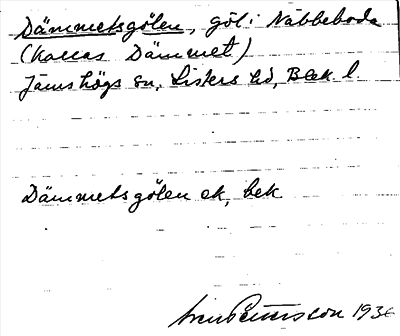 Dämmetsgölen, göl i Näbbeboda
(kallas Dämmet)
Jämshögs sn, Listers hd, Blek l.
Dämmetsgölen ek, bek
Pettersson 1936